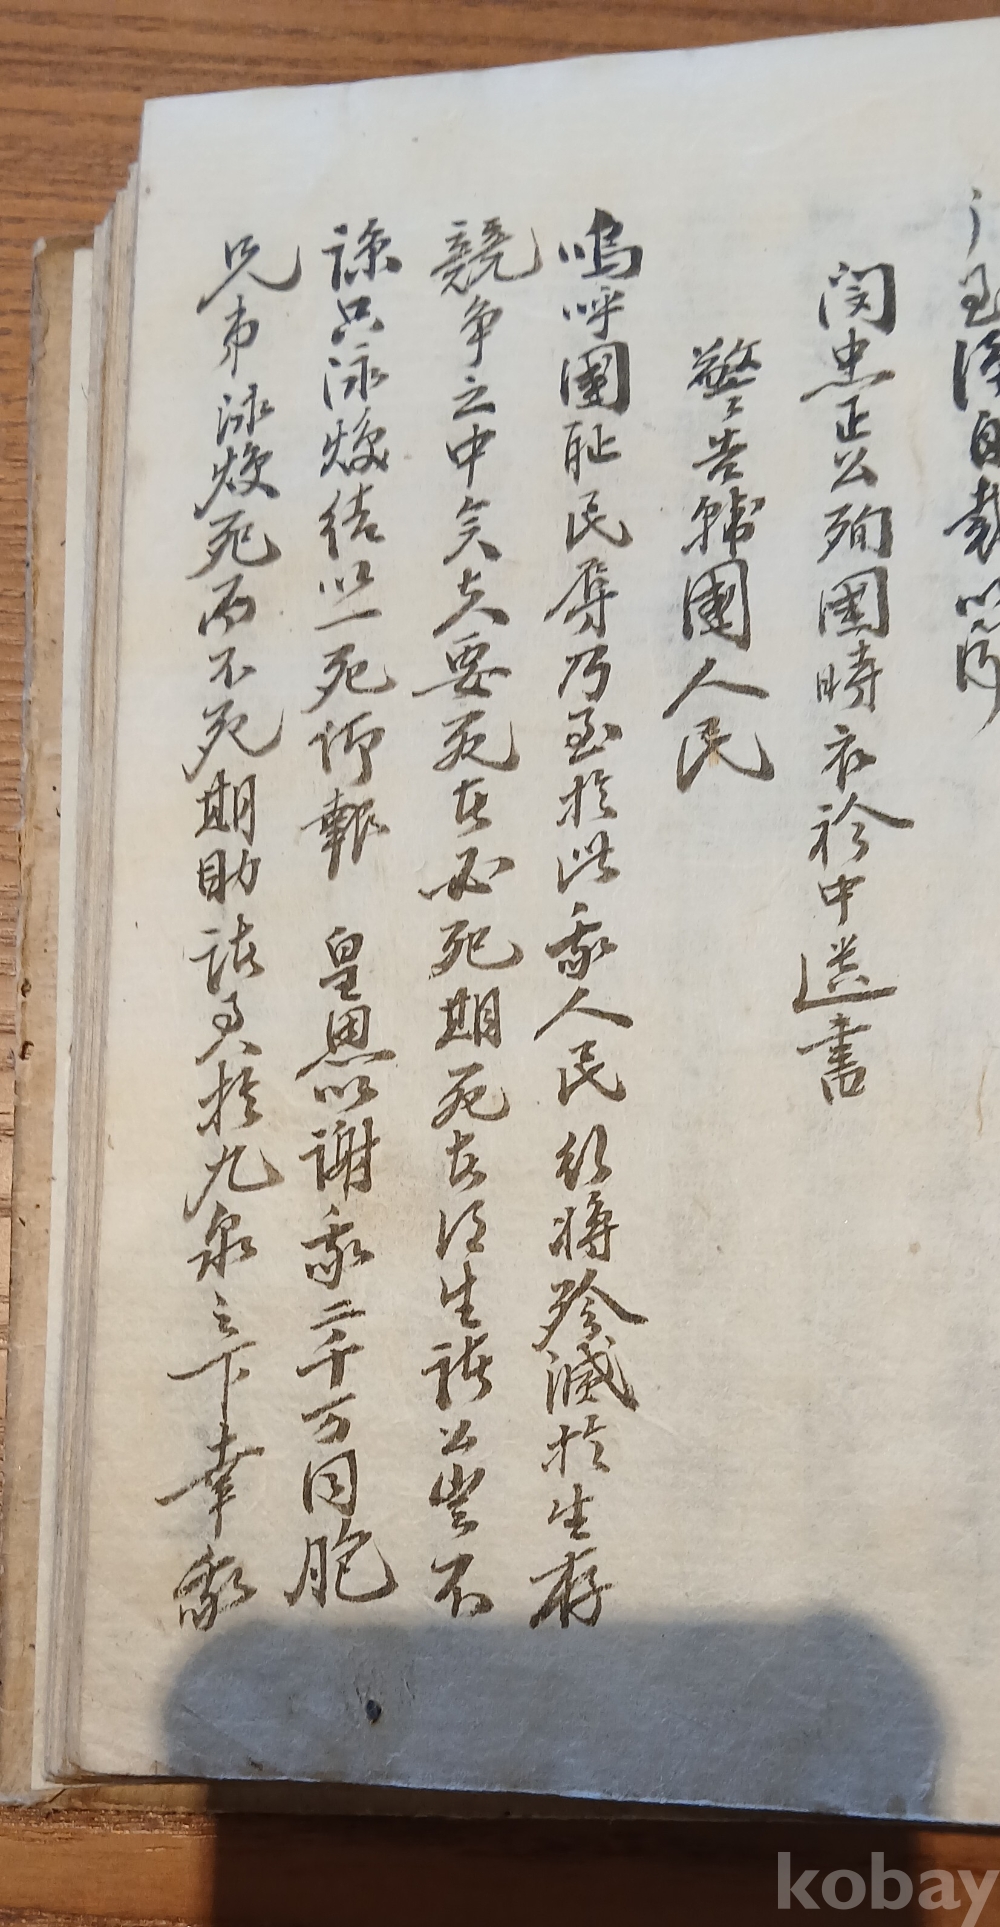 自裁以
閔忠正公殉國時衣衿中遺書
警告韓國人民
嗚呼國恥民辱乃至於此我人民行將殄滅於生存
競争之中矣夫要死者必死期死者得生諸公豈不
諒只泳煥結以一死仰報 皇恩以謝我二千万同胞
兄弟泳煥死而不死期助諸君於九泉之下幸我
kobay